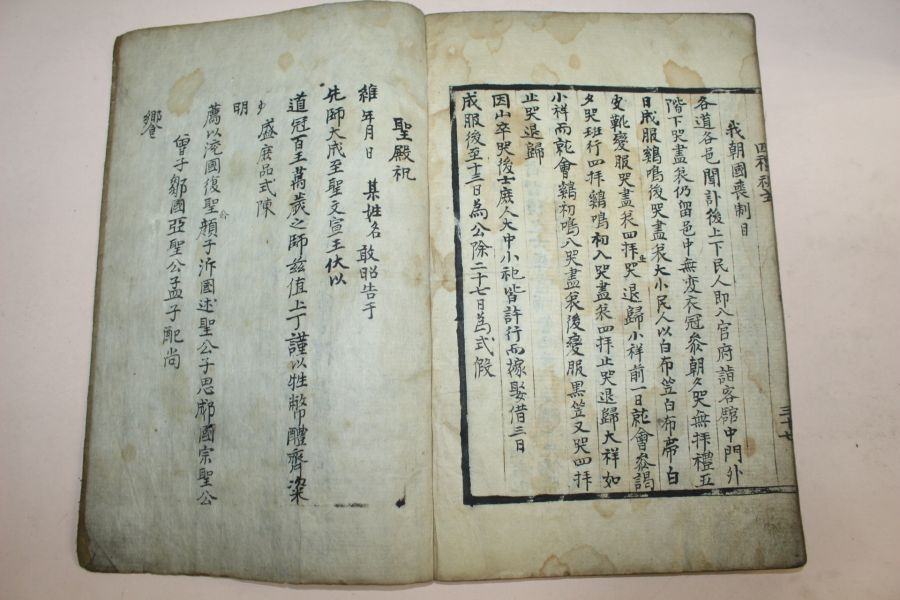 我朝國喪制日
各道各邑聞訃後上下民人即入官府詣客館中門外
階下哭盡哀仍留邑中無変衣冠參朝夕哭無拜禮五
日成服鷄鳴後哭盡哀大小民人以白布笠白布帶白
皮靴變服哭盡哀四拜哭退歸小祥前一日就會參謁
夕哭班行四拜鷄鳴初入哭盡哀四拜止哭退歸大祥如
小祥而就會鷄初鳴入哭盡哀後變服黑笠又哭四拜
止哭退歸
因山卒哭後士庶人大中小祀皆許行而嫁娶借三日
成服後至十三日為公除二十七日爲式假
三十七
聖殿祝
維年月日 某姓名 敢昭告于
先師大成至聖文宣王伏以
道冠百王萬歲之師茲值上丁謹以牲幣醴齊粢
盛庶品式陳
明
薦以兗國復聖顔子沂國述聖公子思郕國宗聖公
曾子鄒國亞聖公孟子配尚
饗